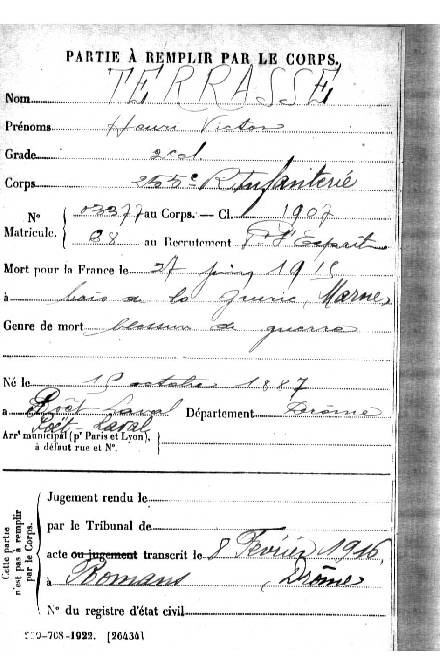 PARTIE À REMPLIR PAR LE CORPS.
Nom TERRASSE
Prénoms Henri Victor
Grade
Corps 255e R. Infanterie
N° 03277 au Corps. — Cl. 1907
Matricule. 68 au Recrutement
Mort pour la France le 27 juin 1915
à bois de la Grurie, Marne
Genre de mort blessures de guerre
Né le octobre 1887
à Poët-Laval Département Drôme
Poët-Laval
Arrt municipal (pr Paris et Lyon),
à défaut rue et N°.
Cette partie
n'est pas à remplir
par le Corps.
Jugement rendu le
par le Tribunal de
acte ou jugement transcrit le 8 Février 1916
à Romans (Drôme)
N° du registre d'état civil
-708-1922. [26434]